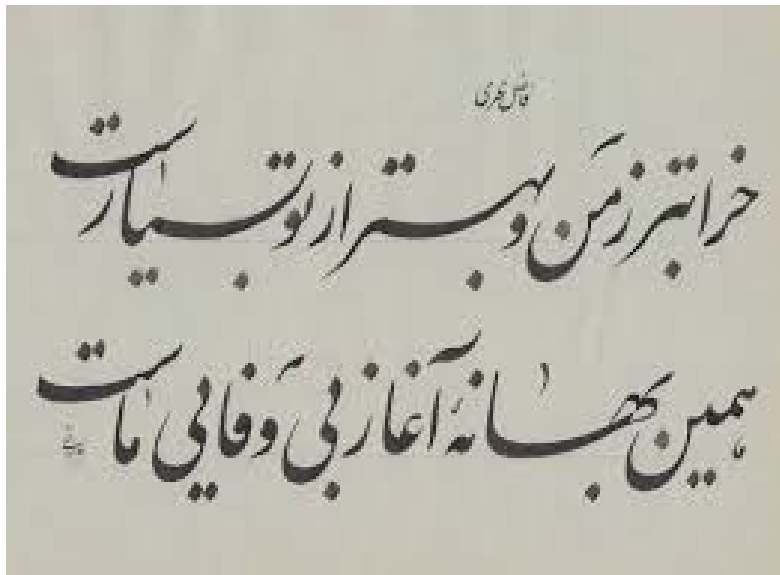 فاضل نظری
خرابتر ز من و بهتر از تو بسیار است
همین بهانهٔ آغاز بی وفایی ماست